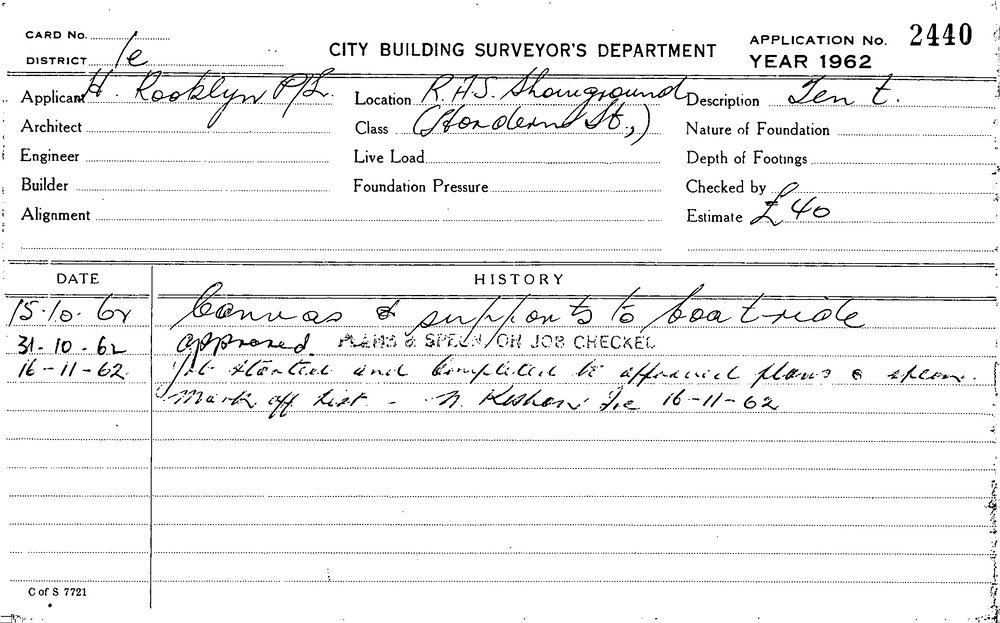 CARD No.
DISTRICT 1e
CITY BUILDING SURVEYOR'S DEPARTMENT
APPLICATION No. 2440
YEAR 1962
Applicant H. Rooklyn P/L.
Location R.A.S. Showground
Description Tent.
Architect
Class (Hordern St.,)
Nature of Foundation
Engineer
Live Load
Depth of Footings
Builder
Foundation Pressure
Checked by
Alignment
Estimate £40
DATE
HISTORY
15.10.62 Canvas & supports to boat-ride
31-10-62 approved. PLANS & SPECN/ON JOB CHECKED
16-11-62. Job started and completed to approved plans & specn.
Mark off list - N. 16-11-62
C of S 7721